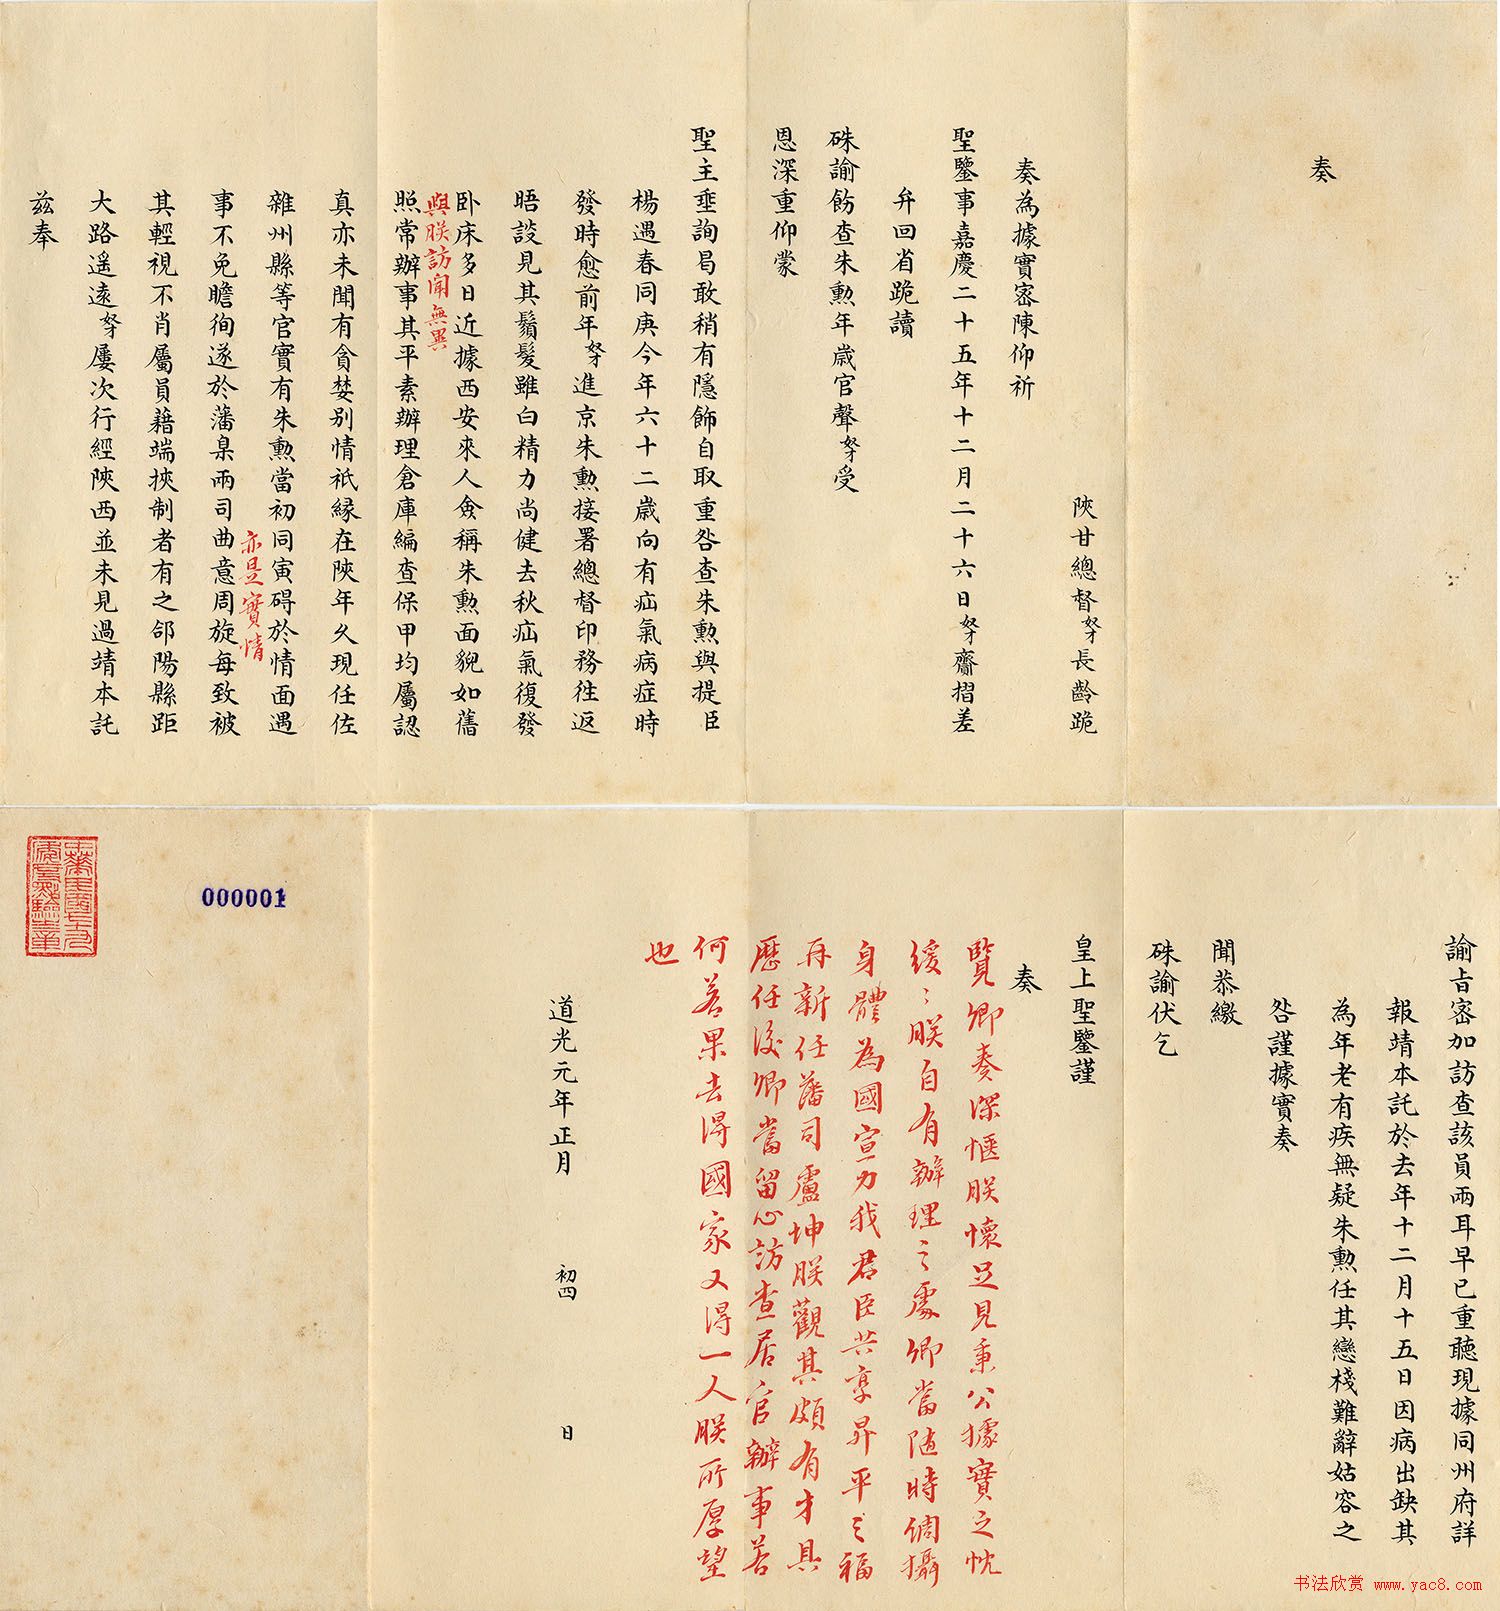 奏
陝甘總督奴才長齡跪
奏為據實密陳仰祈
聖鑒事嘉慶二十五年十二月二十六日奴才齎摺差
弁回省跪讀
硃諭飭查朱勳年歲官聲奴才受
恩深重仰蒙
聖主垂詢曷敢稍有隱飾自取重咎查朱勳與提臣
楊遇春同庚今年六十二歲向有疝氣病症時
發時愈前年奴才進京朱勳接署總督印務往返
晤談見其鬚髮雖白精力尚健去秋疝氣復發
卧床多日近據西安來人僉稱朱勳面貌如舊
與朕訪聞無異
照常辦事其平素辦理倉庫編查保甲均屬認
真亦未聞有貪婪别情祇緣在陝年久現任佐
雜州縣等官實有朱勳當初同寅碍於情面遇
亦是實情
事不免瞻徇遂於藩臬兩司曲意周旋每致被
其輕視不肖屬員藉端挾制者有之郃陽縣距
大路遥遠奴才屢次行經陝西並未見過靖本託
兹奉
諭旨密加訪查該員兩耳早已重聽現據同州府詳
報靖本託於去年十二月十五日因病出缺其
為年老有疾無疑朱勳任其戀棧難辭姑容之
咎謹據實奏
聞恭繳
硃諭伏乞
皇上聖鑒謹
奏
覽卿奏深愜朕懷足見秉公據實之忱
緩緩朕自有辦理之處卿當随時調攝
身體為國宣力我君臣共享昇平之福
再新任藩司盧坤朕觀其頗有才具
歷任後卿當留心訪查居官辦事若
何若果去得國家又得一人朕所厚望
也
道光元年正月 初四 日
000001
书法欣赏 www.yac8.com